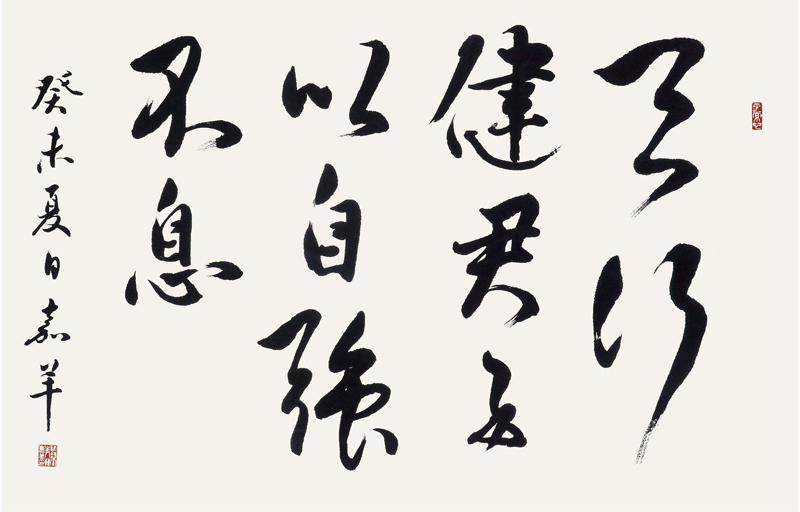 天行
健君子
以自強
不息
癸未夏日嘉羊